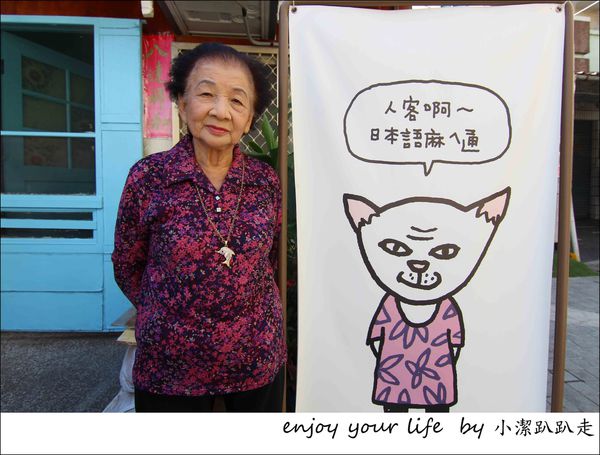 人客啊～
日本語麻ㄟ通
enjoy your life by 小潔趴趴走